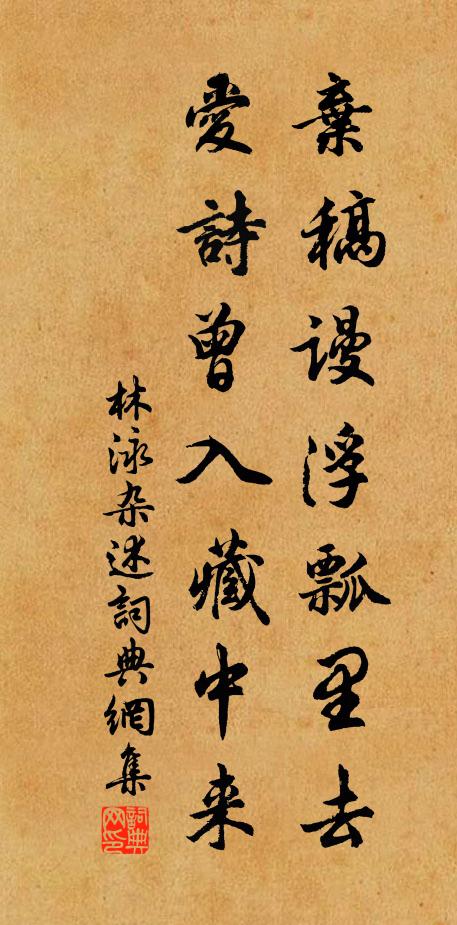 棄稿謾浮瓢里去
愛詩曾入藏中来
林泳杂述詞典網集
詞典网印